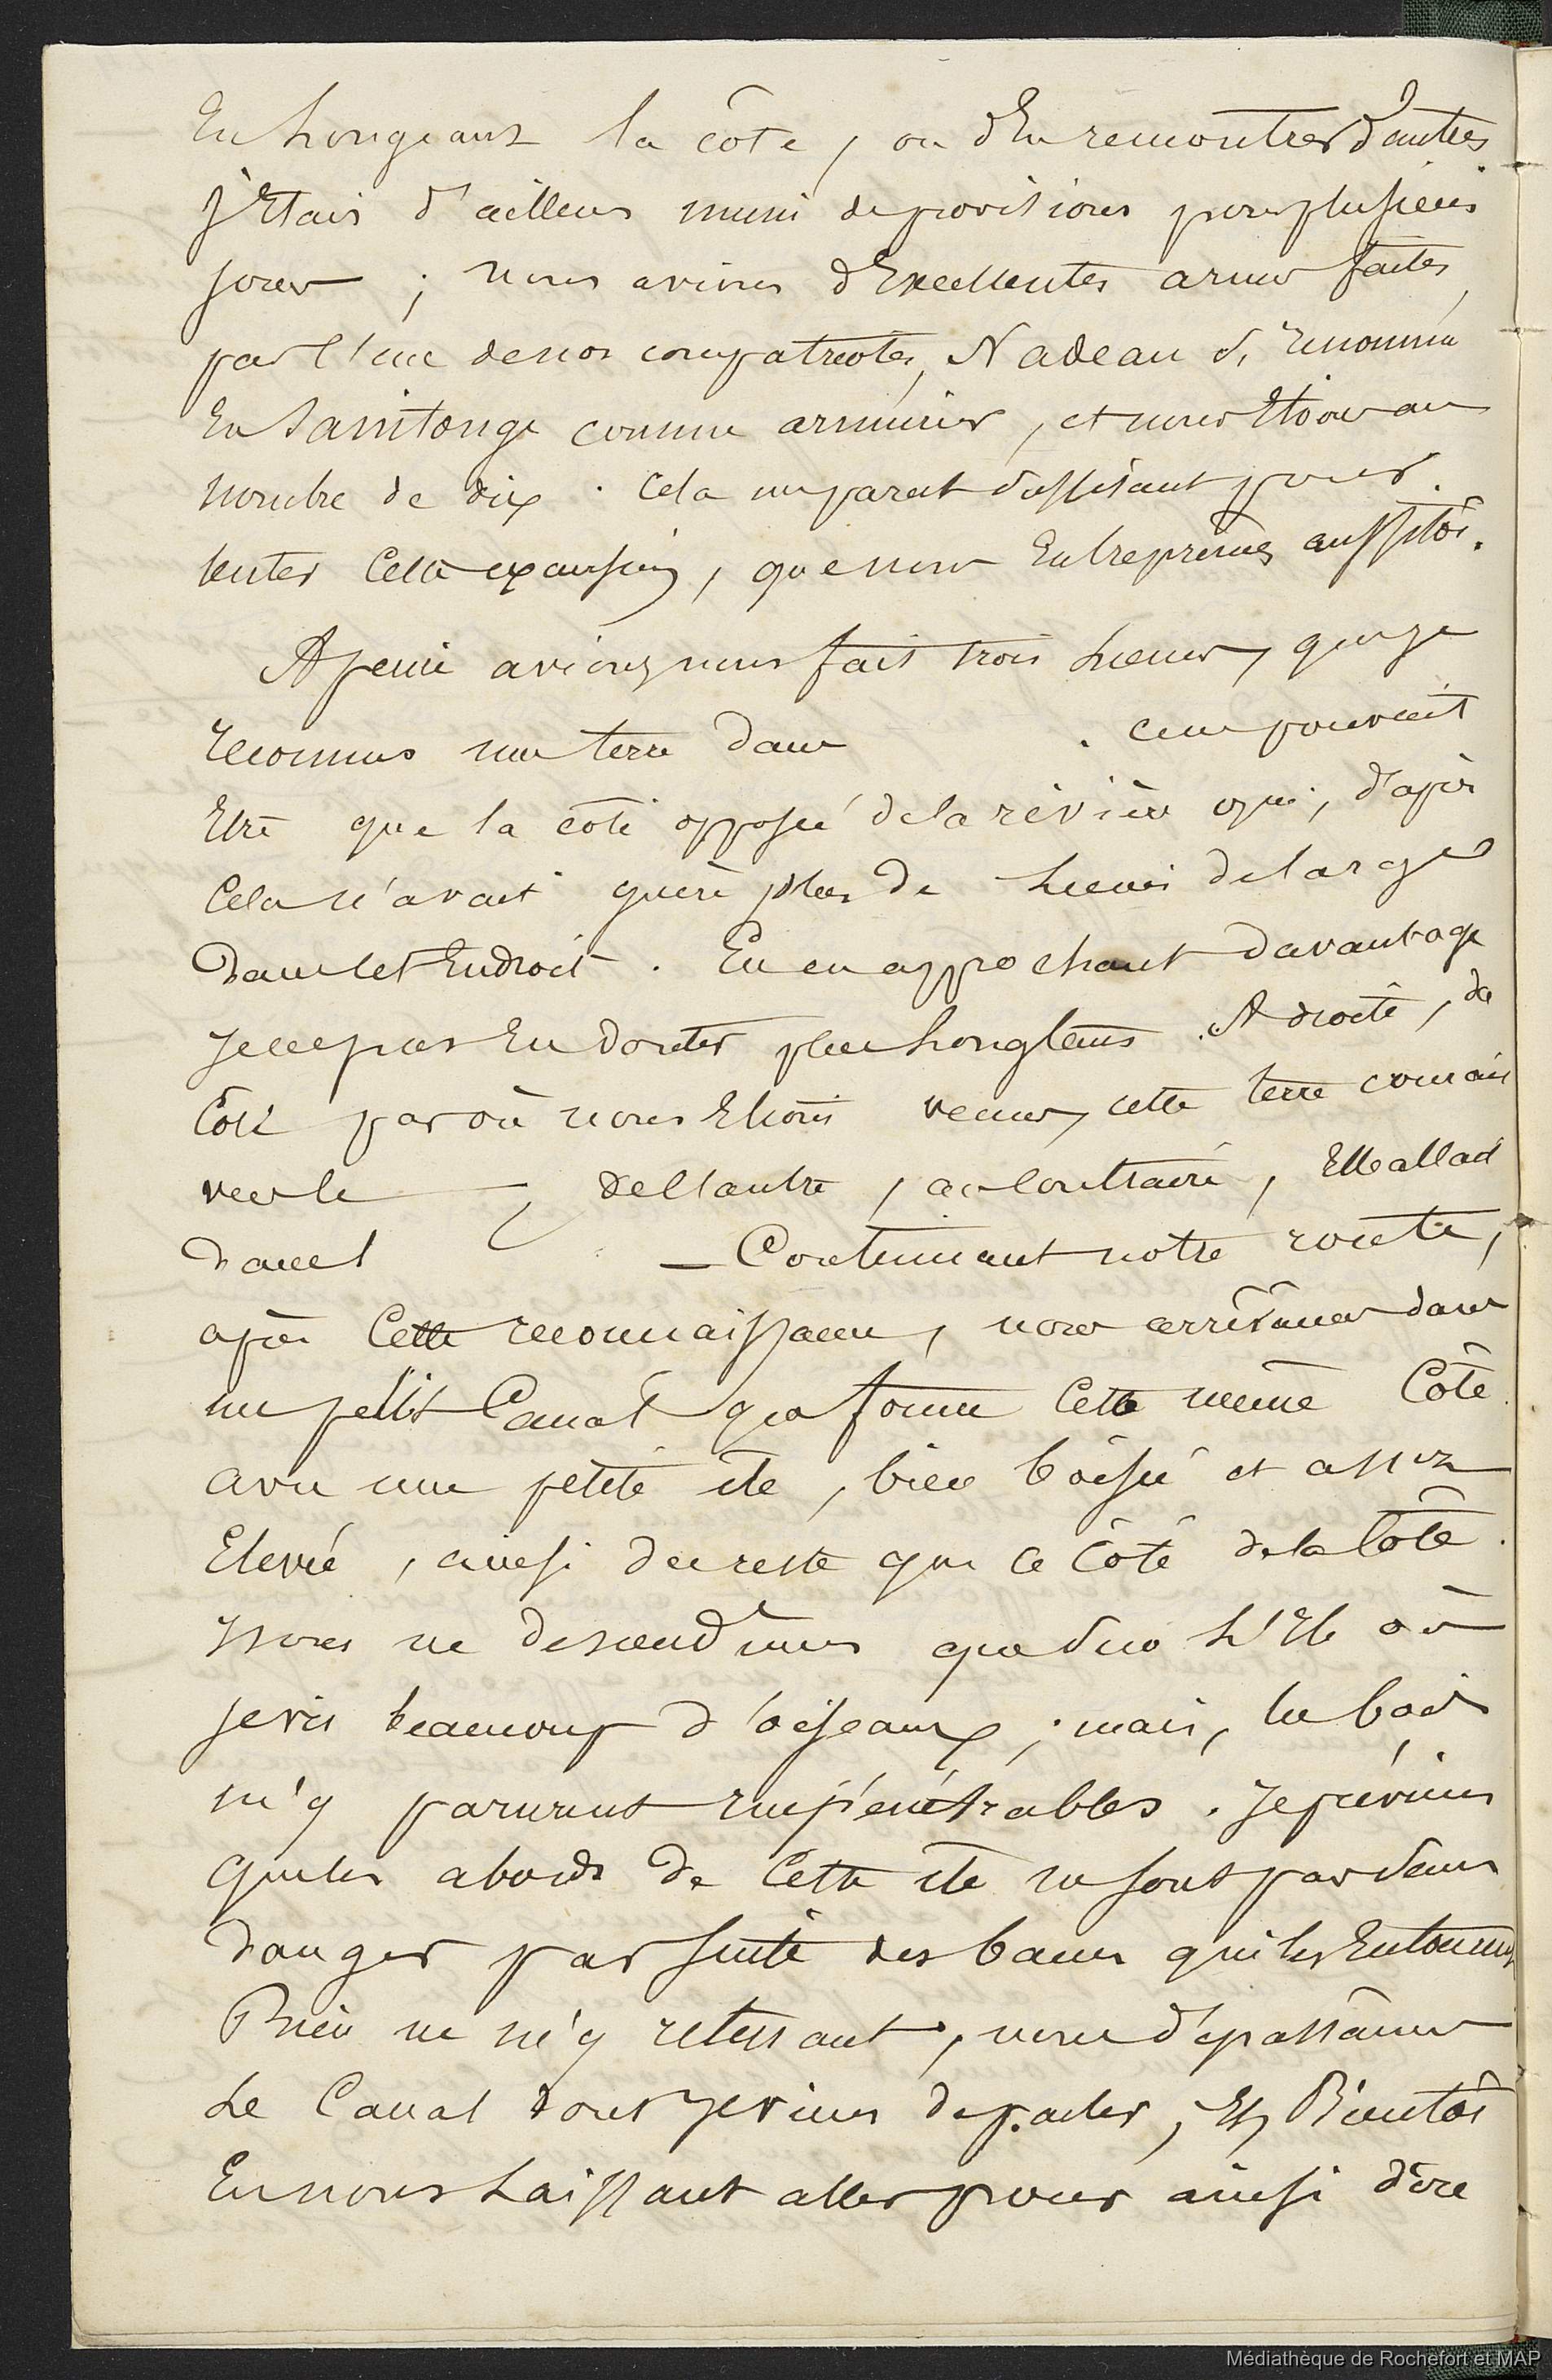 En Longeant la côte, ou d'En remontrer d'autres.
J'Etais d'ailleurs muni de provisions pour plusieurs
jours ; nous avions d'Excellentes armes faites
par l'un de nos compatriotes, Nadeau si renommé
En Saintonge comme armurier, et nous Etions au
nombre de dix. Cela me parut suffisant pour
tenter Cette , que nous Entreprimes aussitôt.
A peine avions nous fait trois Lieues, que je
reconnus une terre dans . ce ne pouvait
Etre que la côte opposée de la rivière qui, d'après
Cela n'avait guère plus de Lieues de large
dans cet Endroit. En en approchant davantage
je ne pus En douter plus Longtems. A droite, du
Côté par où nous Etions venus, cette terre courait
vers le ; de l'autre, au Contraire, Elle allait
dans l — Continuant notre route,
après Cette reconnaissance, nous arrivâmes dans
un petit Canal que forme Cette même Côte
avec une petite île, bien boisée et assez
Elevée, ainsi du reste que ce Côté de la Côte.
Nous ne descendîmes que sur L'Ile où
je vis beaucoup d'oiseaux ; mais, les bois
m'y parurent impénétrables. Je préviens
que les abords de Cette île ne sont pas sans
danger par suite des bancs qui les Entourent
Rien ne m'y retenant, nous dépassâmes
Le Canal dont je viens de parler, Et, Bientôt
En nous Laissant aller pour ainsi dire
Médiathèque de Rochefort et MAP